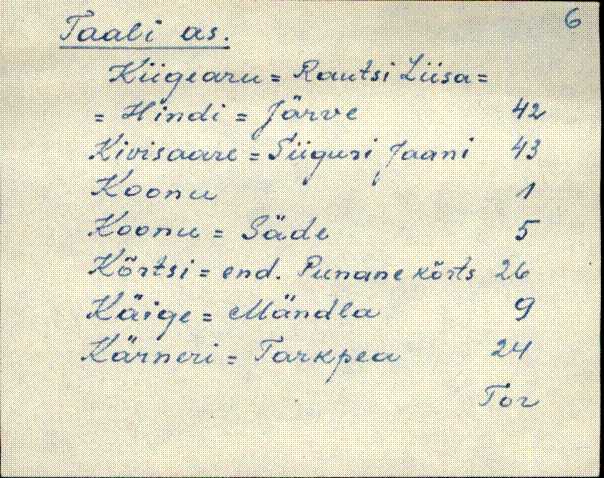 6
Taali as.
Kiigearu = Rautsi Liisa =
= Hindi = Järve 42
Kivisaare = Siiguri Jaani 43
Koonu 1
Koonu = Säde 5
Kõrtsi = end. Punane kõrts 26
Käige = Mändla 9
Kärneri = Tarkpea 24
Tor